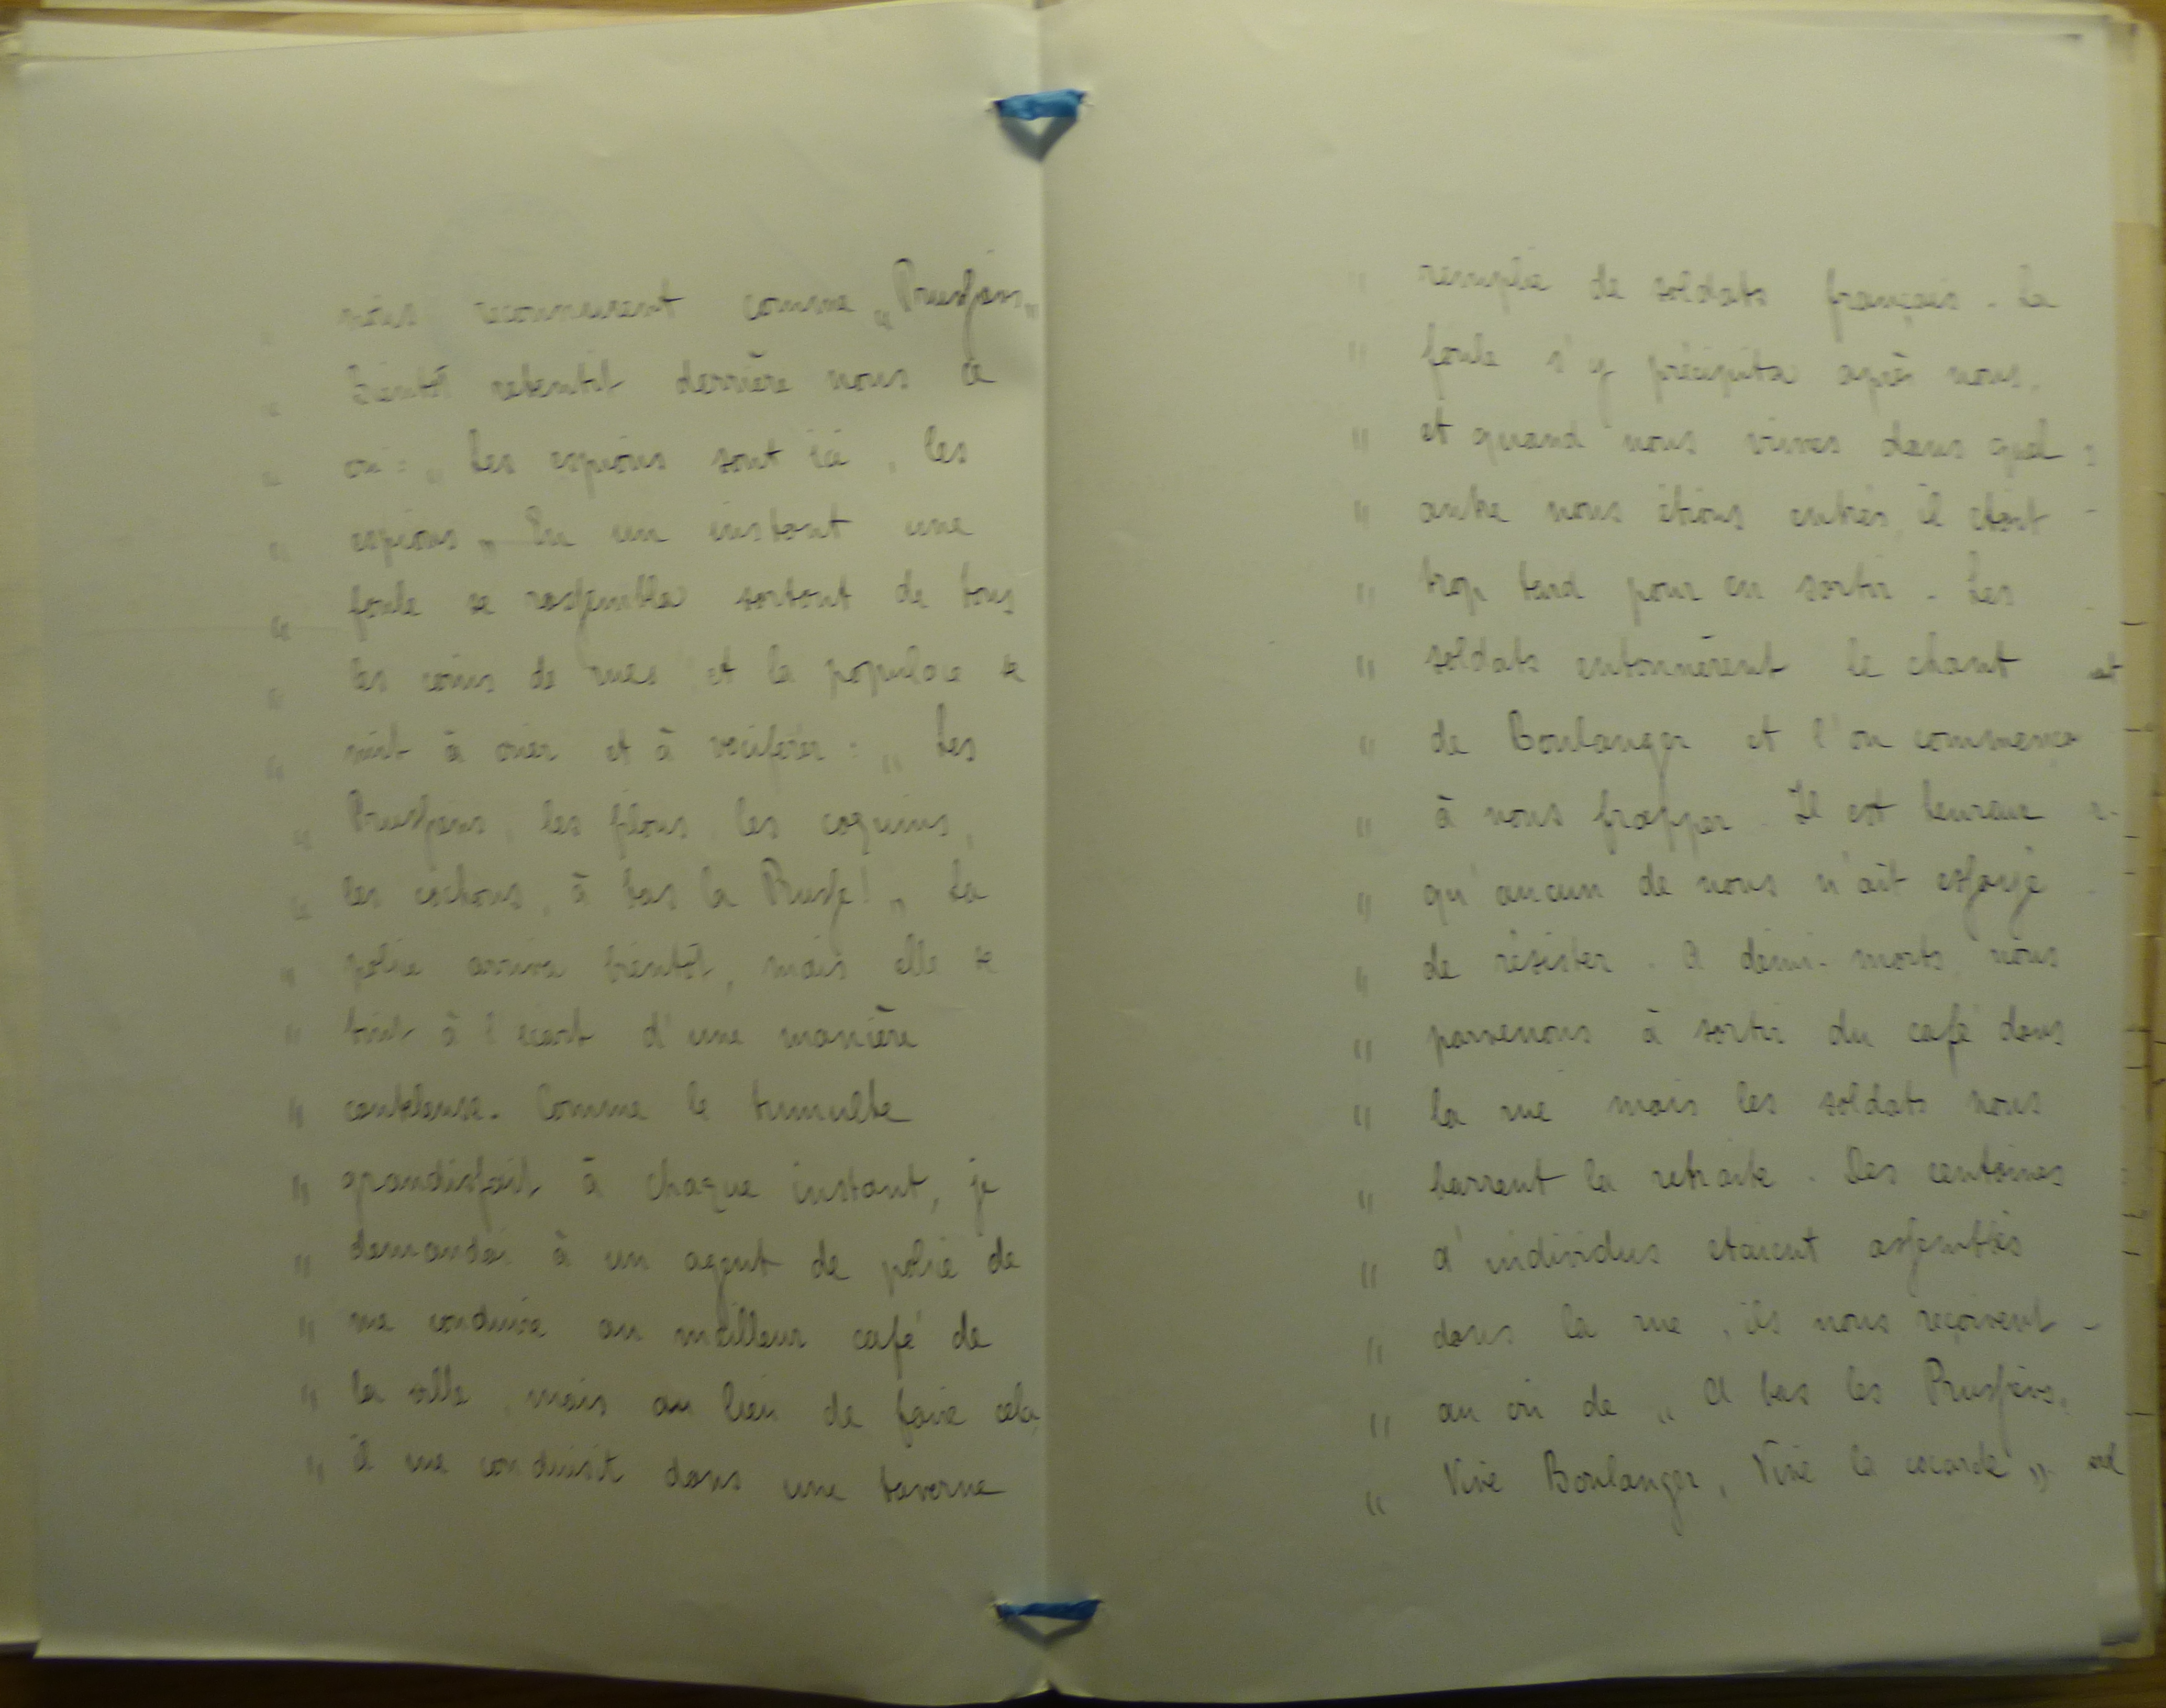 " nous reconnurent comme „Prussiens"
" Bientôt retentit derrière nous ce
" cri: „ Les espions sont ici, les
" espions „ En un instant une
" foule se rassembla sortant de tous
" les coins de rues et la populace se
" mit à crier et à vociférer : „ Les
" Prussiens, les filous, les coquins,
" les cochons, à bas la Prusse! „ La
" police arriva bientôt, mais elle se
" tint à l'écart d'une manière
" cauteleuse. Comme le tumulte
" grandissait à chaque instant, je
" demandai à un agent de police de
" me conduire au meilleur café de
" la ville, mais au lieu de faire cela,
" il me conduisit dans une taverne
" remplie de soldats français. La
" foule s'y précipita après nous,
" et quand nous vimes dans quel
" antre nous étions entrés, il était
" trop tard pour en sortir. Les
" soldats entonnèrent le chant
" de Boulanger et l'on commença
" à nous frapper. Il est heureux
" qu'aucun de nous n'ait essayé
" de résister. A demi-morts, nous
" parvenons à sortir du café dans
" la rue mais les soldats nous
" barrent la retraite. Des centaines
" d'individus etaient assemblés
" dans la rue, ils nous reçoivent
" au cri de „ A bas les Prussiens,
" Vive Boulanger, Vive la cocarde „